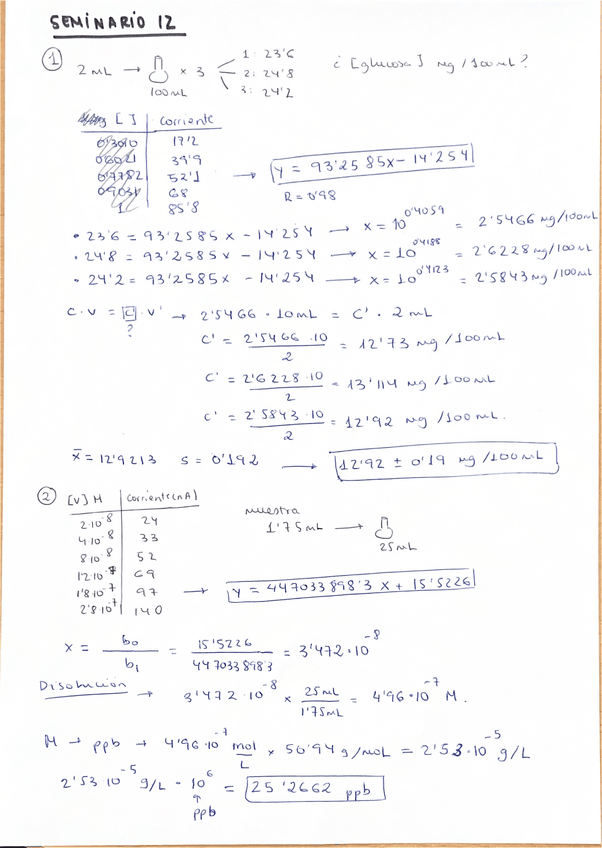 SEMINARIO 12
① 2 mL → 100 mL × 3 1: 23'6 ¿ [glucosa] mg/100mL?
2: 24'8
3: 24'2
[ ] corriente
0'3010 17'2
0'6021 39'9
0'7782 52'1
0'9031 68
1 85'8
→ y = 93'2585x - 14'254
R = 0'98
• 23'6 = 93'2585x - 14'254 → x = 10^0'4059 = 2'5466 mg/100mL
• 24'8 = 93'2585x - 14'254 → x = 10^0'4188 = 2'6228 mg/100mL
• 24'2 = 93'2585x - 14'254 → x = 10^0'4123 = 2'5843 mg/100mL
C · V = [C] · V' → 2'5466 · 10mL = C' · 2 mL
?
C' = 2'5466 · 10 / 2 = 12'73 mg/100mL
C' = 2'6228 · 10 / 2 = 13'114 mg/100mL
C' = 2'5843 · 10 / 2 = 12'92 mg/100mL.
x̄ = 12'9213 S = 0'192 → 12'92 ± 0'19 mg/100mL
② [V] M corriente (nA)
2·10^-8 24
4·10^-8 33
8·10^-8 52
12·10^-8 69
1'8·10^-7 97
2'8·10^-7 140
muestra
1'75mL → 25mL
→ y = 447033898'3 x + 15'5226
x = b₀ / b₁ = 15'5226 / 447033898'3 = 3'472·10^-8
Disolución → 3'472·10^-8 × 25mL / 1'75mL = 4'96·10^-7 M.
M → ppb → 4'96·10^-7 mol/L × 50'94 g/mol = 2'53·10^-5 g/L
2'53·10^-5 g/L · 10^6 = 25'2662 ppb
↑
ppb